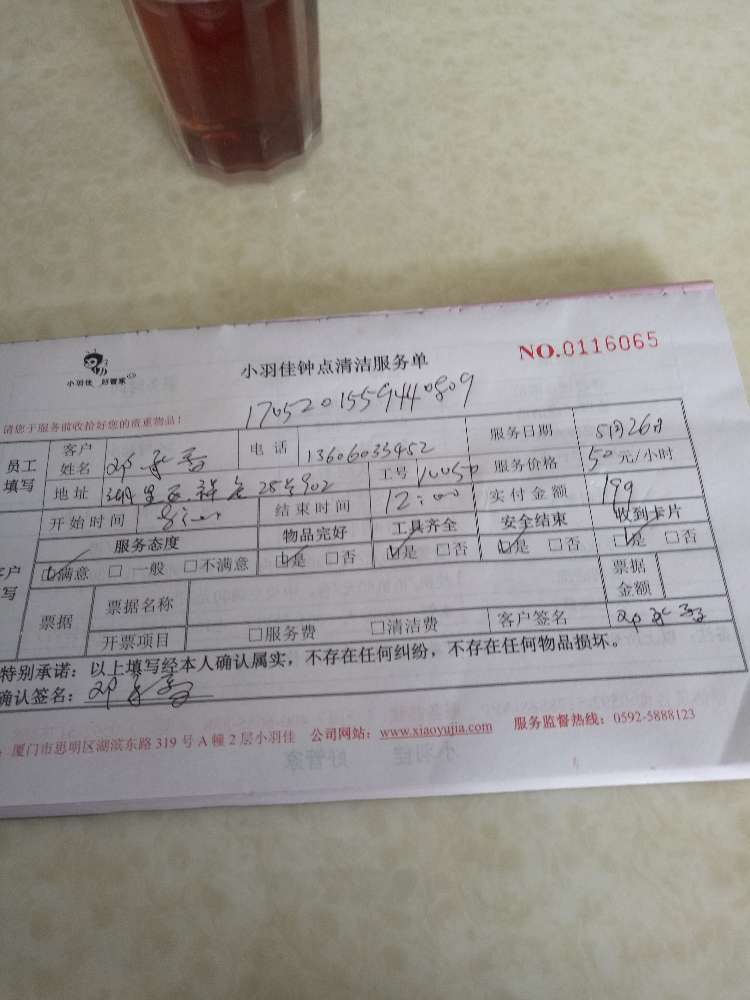 小羽佳 好管家
小羽佳钟点清洁服务单
NO.0116065
请您于服务前收拾好您的贵重物品!
1705201559440809
员工填写 客户姓名 邓 电话 13606033452 服务日期 5月26日
地址 28号902 工号 10050 服务价格 50元/小时
开始时间 8:00 结束时间 12:00 实付金额 199
客户填写 服务态度 物品完好 工具齐全 安全结束 收到卡片
☑满意 □一般 □不满意 ☑是 □否 ☑是 □否 ☑是 □否 ☑是 □否
票据 票据名称 票据金额
开票项目 □服务费 □清洁费 客户签名 邓
特别承诺:以上填写经本人确认属实,不存在任何纠纷,不存在任何物品损坏。
确认签名:邓
厦门市思明区湖滨东路319号A幢2层小羽佳 公司网站:www.xiaoyujia.com 服务监督热线:0592-5888123